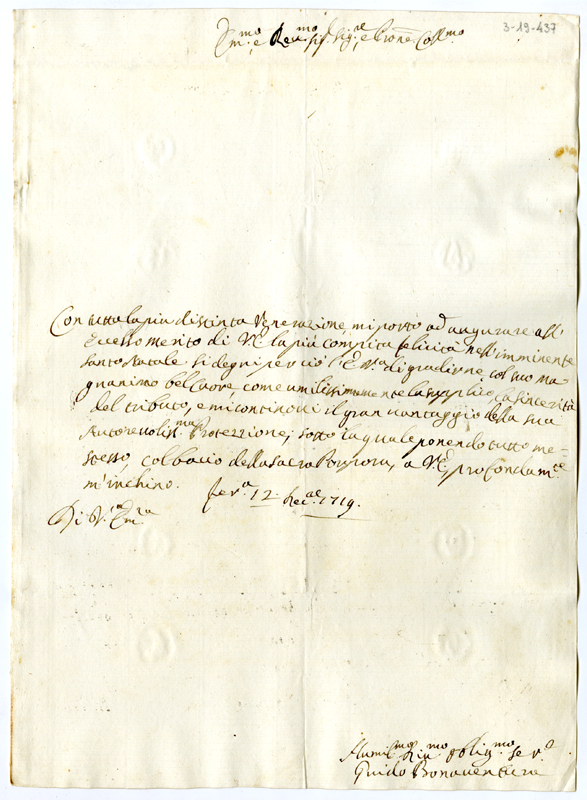 3-19-437
Em.mo e Rev.mo Sig. Sig.re e Prone Coll.mo
Con tutta la piu distinta Venerazione, mi porto ad augurare all'
Eccelso merito di V.E. la più compita felicità nell'imminente
Santo Natale. Si degni perciò l'E.V.ra di gradirne col suo ma-
gnanimo bel Cuore, come umilissimamente la supplico, la sincerità
del tributo, e mi continovi il gran vantaggio della sua
Autorevoliss.ma Protezzione; sotto la quale ponendo tutto me-
stesso, col bacio della Sacra Porpora, a V.E. profondam.te
m'inchino.
Fer.a 12. Xec.ae 1719.
Di V.ra Em.ra
Humil.mo Div.mo Oblig.mo Se.re
Guido Bonaventura